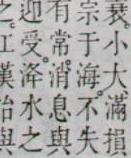 衰。小大。滿損
宗于海。不失
有常。消息與
迎受。洚水之
之。江漢治與